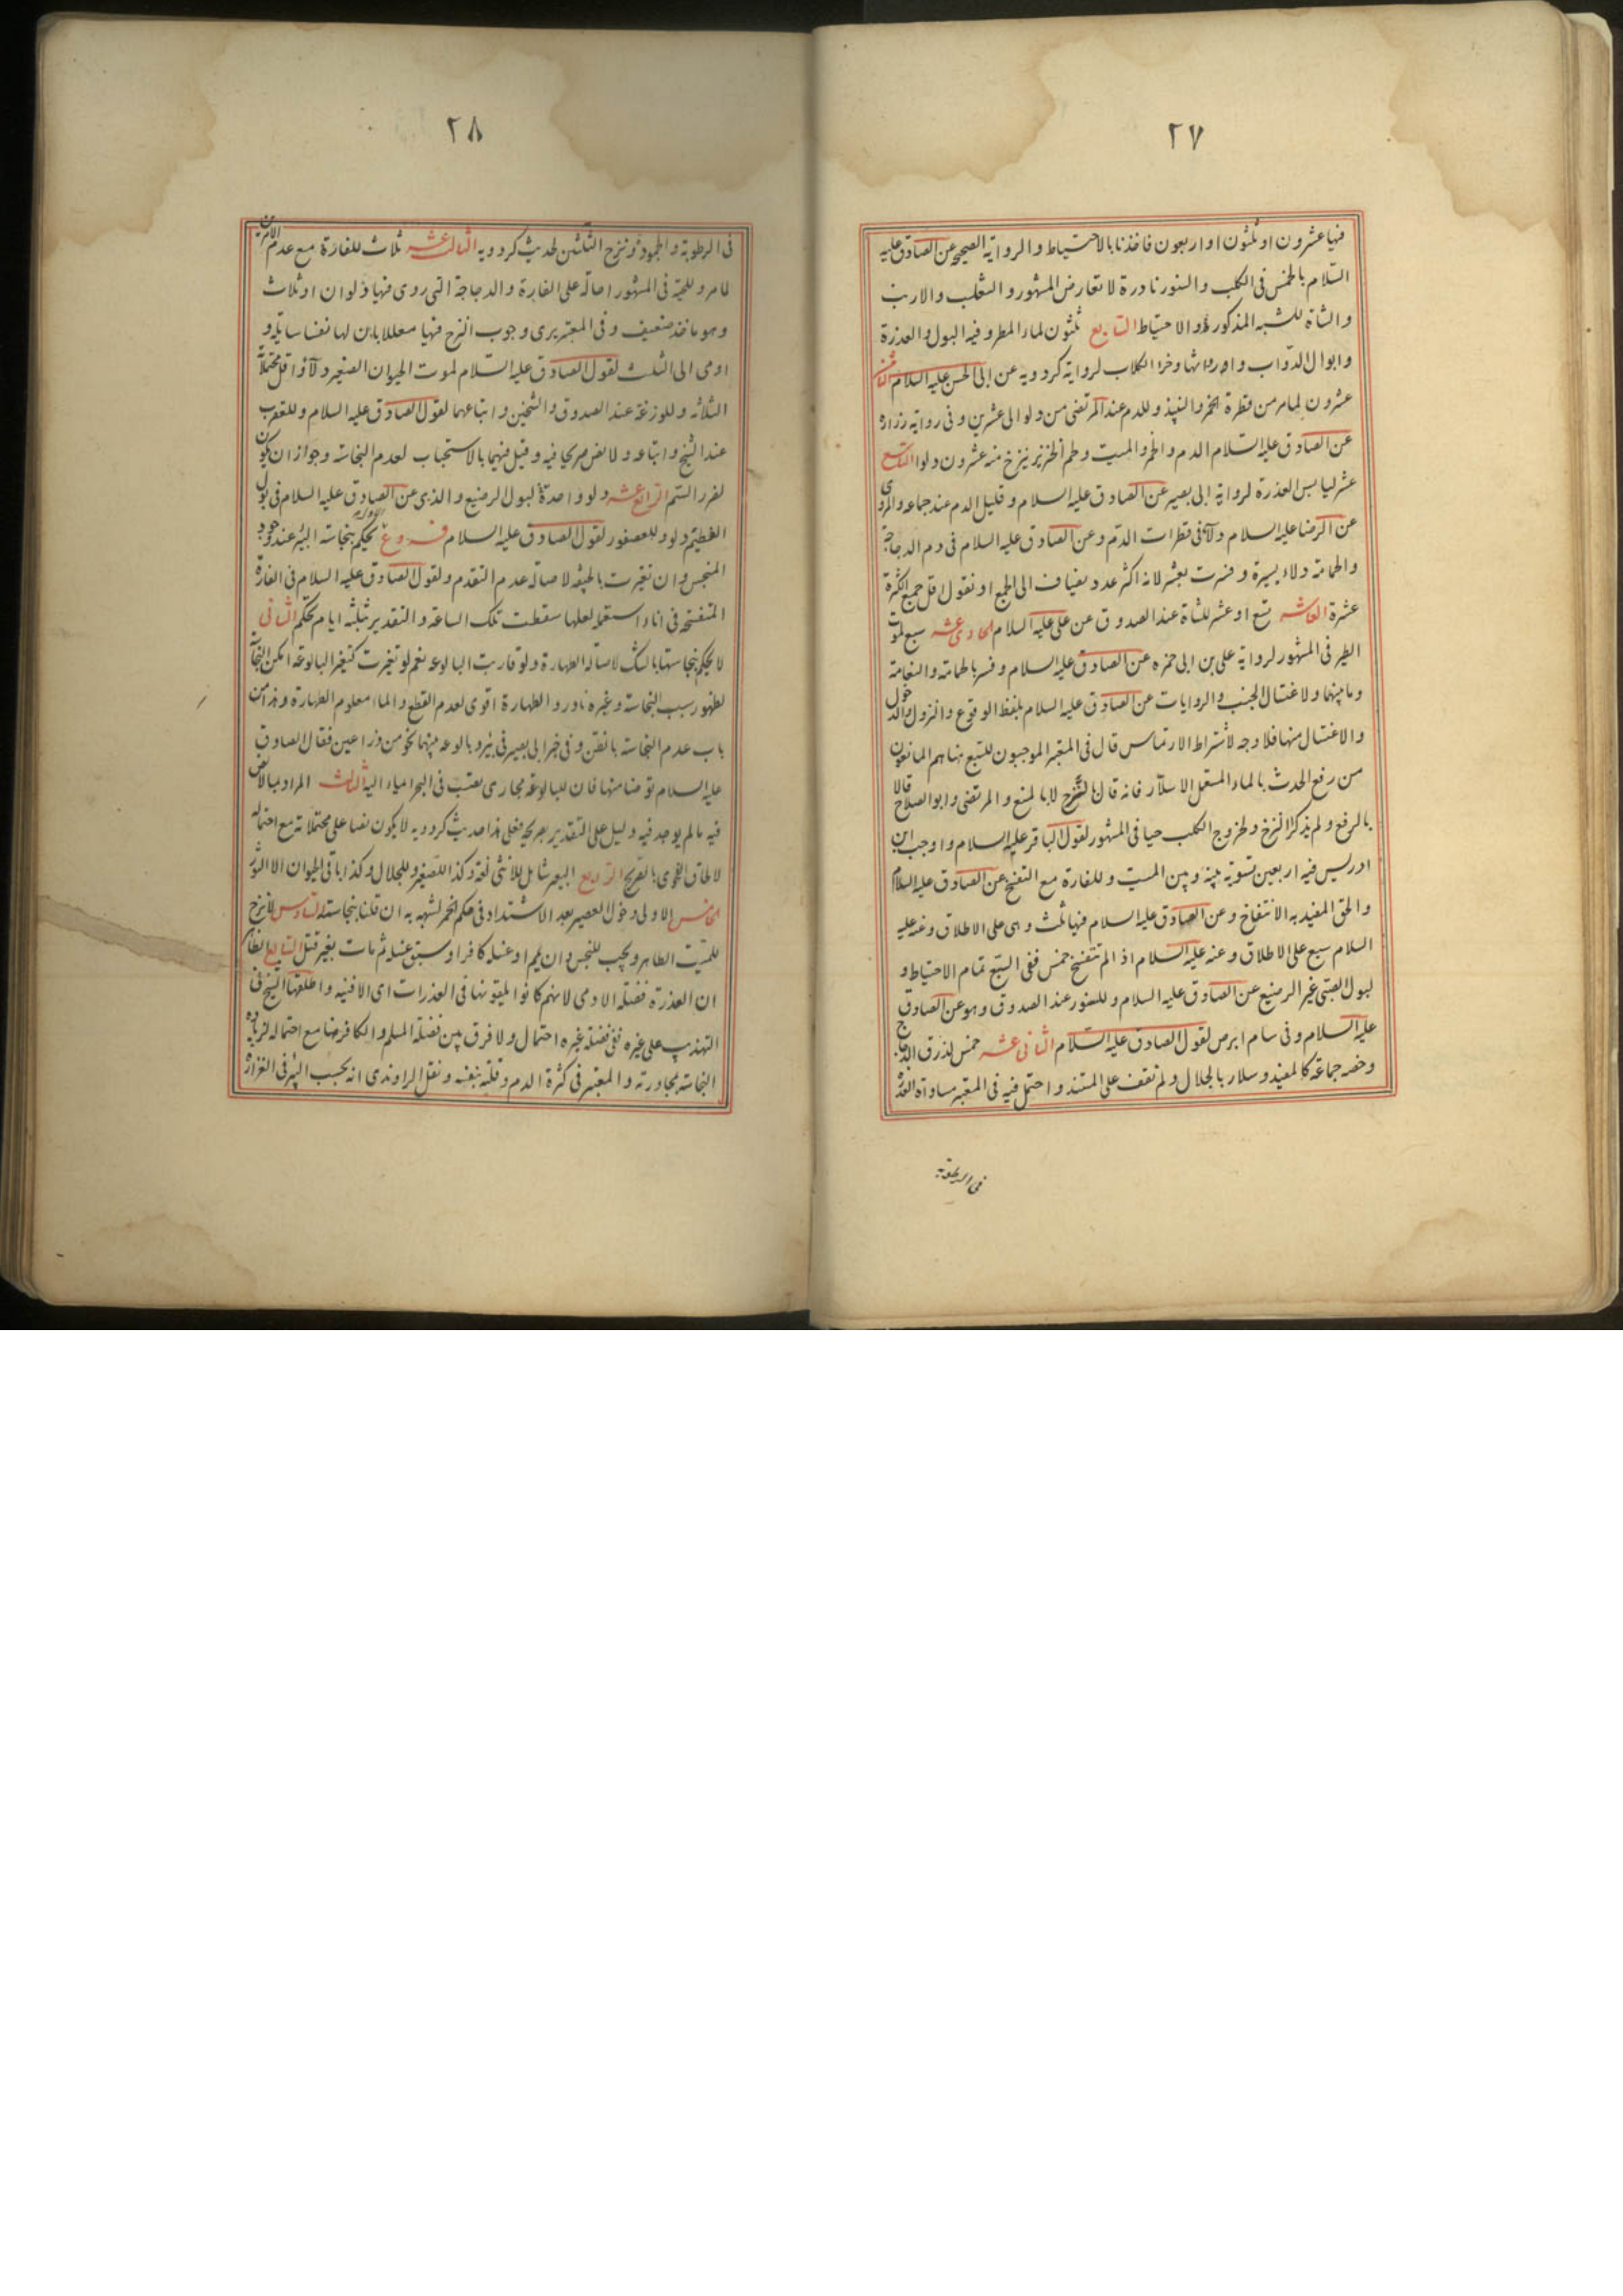 ٢٧
فيها عشرون او ثلثون او اربعون فاخذنا بالاحتياط والرواية الصحيحه عن الصادق عليه
السلام بالخمس فى الكلب والسنور نادرة لا تعارض المشهور والثعلب والارنب
والشاة للشبه المذكور والاحتياط السابع ثلثون لماء المطر وفيه البول والعذرة
وابوال الدواب وارواثها وخرا الكلاب لرواية كردويه عن ابى الحسن عليه السلام الثامن
عشرون لما مر من قطرة الخمر والنبيذ وللدم عند المرتضى من دلو الى عشرين وفى رواية زرارة
عن الصادق عليه السلام الدم والخمر والميت ولحم الخنزير ينزح منه عشرون دلوا التاسع
عشر ليابس العذرة لرواية ابى بصير عن الصادق عليه السلام وقليل الدم عند جماعه والمروى
عن الرضا عليه السلام دلاء فى قطرات الدم وعن الصادق عليه السلام فى دم الدجاجة
والحمامة دلاء يسيرة وفسرت بعشر لانه اكثر عدد يضاف الى الجمع او نقول اقل جمع الكثرة
عشرة العاشر تسع او عشر للشاة عند الصدوق عن على عليه السلام الحادى عشر سبع لموت
الطير فى المشهور لرواية على بن ابى حمزه عن الصادق عليه السلام وفسر بالحمامة والنعامة
وما بينهما ولاغتسال الجنب والروايات عن الصادق عليه السلام بلفظ الوقوع والنزول والدخول
والاغتسال منها فلا وجه لاشتراط الارتماس قال فى المعتبر الموجبون للسبع هنا هم المانعون
من رفع الحدث بالماء المستعمل الا سلار فانه قال بالنزح لا بالمنع والمرتضى وابو الصلاح قالا
بالرفع ولم يذكرا النزح ولخروج الكلب حيا فى المشهور لقول الباقر عليه السلام واوجب ابن
ادريس فيه اربعين تسوية بينه وبين الميت وللفارة مع التفسخ عن الصادق عليه السلام
والحق المفيد به الانتفاخ وعن الصادق عليه السلام فيها ثلث وهى على الاطلاق وعنه عليه
السلام سبع على الاطلاق وعنه عليه السلام اذا لم تتفسخ خمس ففى السبع تمام الاحتياط و
لبول الصبى غير الرضيع عن الصادق عليه السلام وللسنور عند الصدوق وهو عن الصادق
عليه السلام وفى سام ابرص لقول الصادق عليه السلام الثانى عشر خمس لذرق الدجاج
وخصه جماعة كالمفيد وسلار بالجلال ولم نقف على المستند واحتمل فيه فى المعتبر مساواة العذرة
فى الرطوبة
٢٨
فى الرطوبة والجمود ونزح الثلثين لحديث كردويه الثالث عشر ثلاث للفارة مع عدم الامرين
لما مر وللحية فى المشهور احالة على الفارة والدجاجة التى روى فيها دلوان او ثلاث
وهو ماخذ ضعيف وفى المعتبر يرى وجوب النزح فيها معللا بان لها نفسا سايلة و
اومى الى الثلث لقول الصادق عليه السلام لموت الحيوان الصغير دلاء واقل محتملاته
الثلاثه وللوزغة عند الصدوق والشيخين واتباعهما لقول الصادق عليه السلام وللعقرب
عند الشيخ واتباعه ولا نص صريحا فيه وقيل فيهما بالاستحباب لعدم النجاسة وجواز ان يكون
لضرر السم الرابع عشر دلو واحدة لبول الرضيع والذى عن الصادق عليه السلام فى بول
الفطيم دلو وللعصفور لقول الصادق عليه السلام فروع الاول يحكم بنجاسة البئر عند وجود
المنجس وان تغيرت بالجيفه لاصالة عدم التقدم ولقول الصادق عليه السلام فى الفارة
المتفسخة فى اناء استعمل لعلها سقطت تلك الساعة والتقدير بثلثه ايام تحكم الثانى
لا يحكم بنجاستها بالشك لاصالة الطهارة ولو قاربت البالوعه نعم لو تغيرت كتغير البالوعة امكن النجاسة
لظهور سبب النجاسة وغيره نادر والطهارة اقوى لعدم القطع والماء معلوم الطهارة وهذا من
باب عدم النجاسة بالظن وفى خبر ابى بصير فى بئر وبالوعه بينهما نحو من ذراعين فقال الصادق
عليه السلام توضئا منها فان للبالوعة مجارى تصب فى البحر امياء اليه الثالث المراد بما لا نص
فيه ما لم يوجد فيه دليل على التقدير بصريحه فعلى هذا حديث كردويه لا يكون نصا على محتملاته مع احتماله
لالحاق الفحوى بالصريح الرابع البعير شامل للانثى لغة وكذا الصغير وللجلال وكذا باقى الحيوان الا الثور
الخامس الاولى دخول العصير بعد الاشتداد فى حكم الخمر لشبهه به ان قلنا بنجاسته السادس لا نزح
للميت الطاهر ويجب للنجس وان يمم او غسله كافر او سبق غسله ثم مات بغير قتل السابع الظاهر
ان العذرة فضلة الادمى لانهم كانوا يلقونها فى العذرات اى الافنيه واطلقها الشيخ فى
التهذيب على غيره ففى فضلة غيره احتمال ولا فرق بين فضلة المسلم والكافر هنا مع احتماله لزيادة
النجاسة بمجاورته والمعتبر فى كثرة الدم وقلته بنفسه ونقل الراوندى انه بحسب البئر فى الغزارة